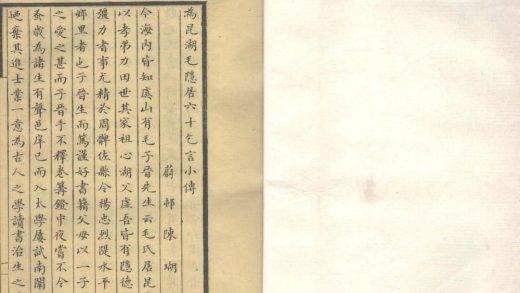 為昆湖毛隱居六十乞言小傳
蔚邨陳瑚
今海內皆知虞山有毛子晉先生云毛氏居昆
以孝弟力田世其家祖心湖父虛吾皆有隱德
彊力者事尤精於周髀佐縣令楊忠烈隄水平
鄉里者也子晉生而篤謹好書籍父母以一子
之愛之甚而子晉手不釋卷篝鐙中夜嘗不令
蚤歲為諸生有聲邑庠已而入太學屢試南闈
迺棄其進士業一意為古人之學讀書治生之